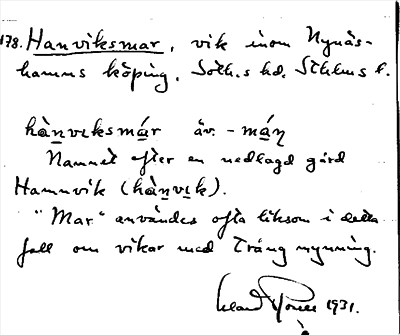 178. Hanviksmar, vik inom Nynäs-
hamns köping, Soth.s hd. Sthlms l.
hànviksmár äv. -máṇ
Namnet efter en nedlagd gård
Hamnvik (hànvik).
"Mar" användes ofta liksom i detta
fall om vikar med trång mynning.
1931.